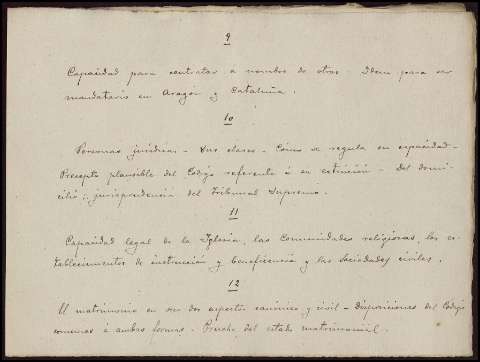 9
Capacidad para contratar a nombre de otros - Idem para ser
mandatario en Aragon y Cataluña.
10
Personas jurídicas. - Sus clases. - Cómo se regula su capacidad -
Precepto plausible del Código referente á su extinción - Del domi-
cilio: jurisprudencia del Tribunal Supremo.
11
Capacidad legal de la Iglesia, las Comunidades religiosas, los es-
tablecimientos de instrucción y beneficencia y las Sociedades civiles.
12
El matrimonio en sus dos aspectos canónico y civil - Disposiciones del Código
comunes á ambas formas. - Prueba del estado matrimonial.